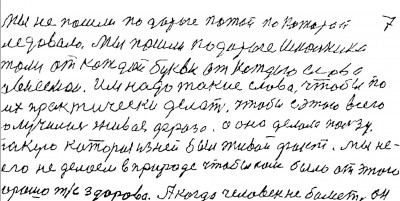 Мы не пошли по дороге по той по которой 7
ледовало. Мы пошли по дороге школьника
толи от каждой буквы от каждого слова
человеком. Им надо такие слова, чтобы по
их практически делат, чтобы с этого всего
олучился живая дорога. а оно делало пользу.
такую которая из ней был живой факт. Мы не-
его не делаем в природе чтобы нам было от этого
орошо т/е здорово. А когда человек не болеет, он